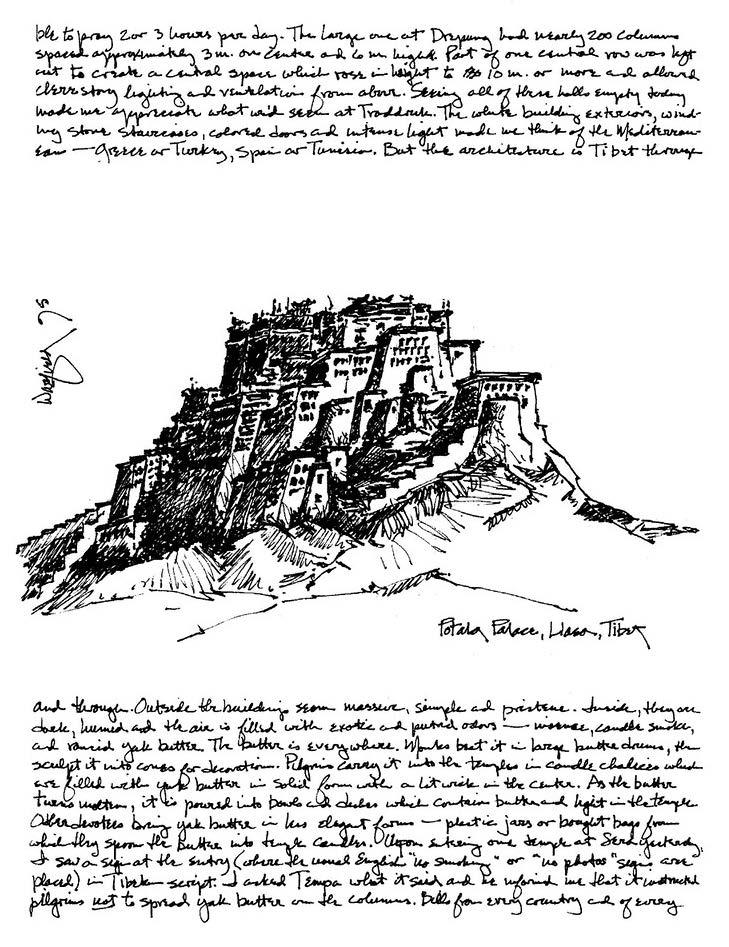 ble to pray 2 or 3 hours per day. The large one at Drepung had nearly 200 columns
spaced approximately 3 m. on centre and 6 m. high. Part of one central row was left
out to create a central space which rose in height to 10 m. or more and allowed
clerestory lighting and ventilation from above. Seeing all of these halls empty today
made me appreciate what we'd seen at. The white building exteriors, wind-
ing stone staircases, colored doors and intense light made me think of the Mediterran-
ean — Greece or Turkey, Spain or Tunisia. But the architecture is Tibet through
75
Potala Palace, Llasa, Tibet
and through. Outside the buildings seem massive, simple and pristene. Inside, they are
dark, humid and the air is filled with exotic and putrid odors — incense, candle smoke,
and rancid yak butter. The butter is everywhere. Monks beat it in large butter drums, then
sculpt it into cones for decoration. Pilgrims carry it into the temples in candle chalices which
are filled with yak butter in solid form with a lit wick in the center. As the butter
turns molten, it is poured into bowls and dishes which contain butter and light in the temple.
Other devotees bring yak butter in less elegant forms — plastic jars or bought bags from
which they spoon the butter into temple candles. Upon entering one temple at Sera yesterday,
I saw a sign at the entry (where the usual English "no smoking" or "no photos" signs are
placed) in Tibetan script. I asked Tempa what it said and he informed me that it instructed
pilgrims not to spread yak butter on the columns. Bells from every country and of every